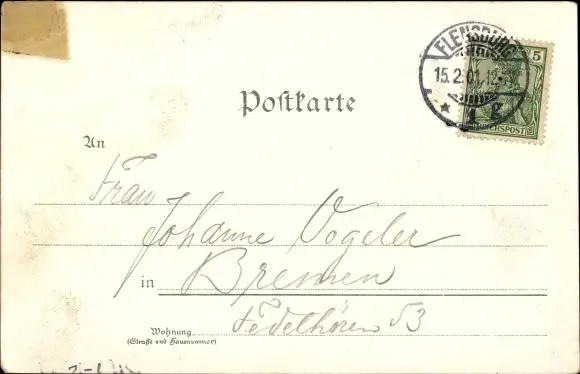 FLENSBURG
15.2.01.12-
* 1 g
5
REICHSPOST
Postkarte
An
Frau
Johanne Vogeler
in Bremen
Wohnung
(Straße und Hausnummer)
Fedelhören 53